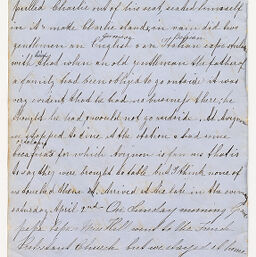 pulled Charlie out of his seat, seated himself
in it & made Charlie stand, in vain did two
German Russian
gentlemen an English & an Italian expostulate
with him
when an old gentleman the father of
a family had been obliged to go outside it was
very evident that he had no business there; he
thought he had would not go outside. At Avignon
we stopped to dine, at the station & had some
for which Avignon is famous that is
to say they were brought to table but I think none of
us touched them & arrived at late in the evening
Saturday April 2nd - On Sunday morning
papa & Miss Hill went to the French
Protestant Church but we stayed at home